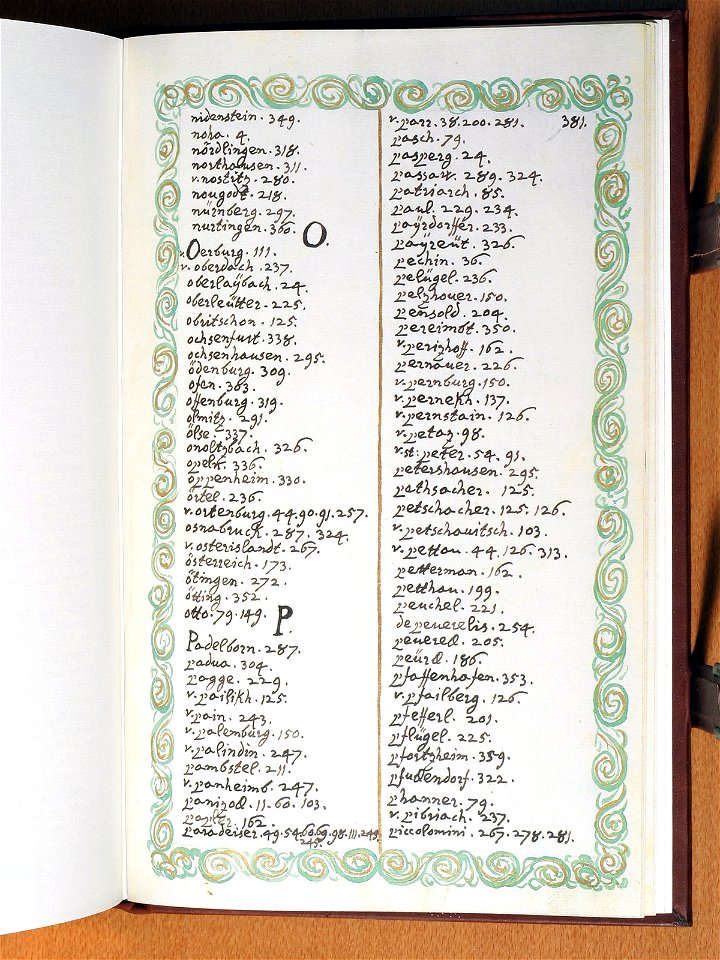 nidenstein. 349.
noha. 4.
nördlingen. 318.
northausen. 311.
v. nostitz. 280.
nougodt. 218.
nürnberg. 297.
nurtingen. 360.
O.
v. Oerburg. 111.
v. oberdach. 237.
oberlaÿbach. 24.
oberleütter. 225.
obritschon. 125.
ochsenfurt. 338.
ochsenhausen. 295.
ödenburg. 309.
ofen. 363.
offenburg. 319.
olmitz. 291.
ölse. 337.
onoltzbach. 326.
opelk. 336.
oppenheim. 330.
örtel. 236.
v. ortenburg. 44. 90. 91. 257.
osnabruck. 287. 324.
v. osterislandt. 267.
österreich. 173.
ötingen. 272.
ötting. 352.
otto. 79. 149.
P.
Padelborn. 287.
padua. 304.
pagge. 229.
v. pailikh. 125.
v. pain. 243.
v. palemburg. 150.
v. palindin. 247.
pambstel. 211.
v. panheimb. 247.
panizod. 11. 60. 103.
papler. 162.
paradeiser. 49. 54. 60. 69. 98. 111. 243.
245.
v. parr. 38. 200. 281.
381.
pasch. 79.
pasperg. 24.
passaw. 289. 324.
patriarch. 85.
paul. 229. 234.
paÿrdorffer. 233.
paÿreüt. 326.
pechin. 36.
pelügel. 236.
pelzhover. 150.
pensold. 204.
pereimbt. 350.
v. perizhoff. 162.
pernauer. 226.
v. pernburg. 150.
v. pernekh. 137.
v. pernstain. 126.
v. petaz. 98.
v. st: peter. 54. 91.
petershausen. 295.
pathsacher. 125.
petschacher. 125. 126.
v. petschauitsch. 103.
v. pettau. 44. 126. 313.
petterman. 162.
petthau. 199.
peuchel. 221.
de peuerelis. 254.
peuered. 205.
peürd. 186.
pfaffenhafen. 353.
v. pfailberg. 126.
pfefferl. 201.
pflügel. 225.
pfortzheim. 359.
pfudendorf. 322.
phanner. 79.
v. pibriach. 237.
piccolomini. 267. 278. 281.